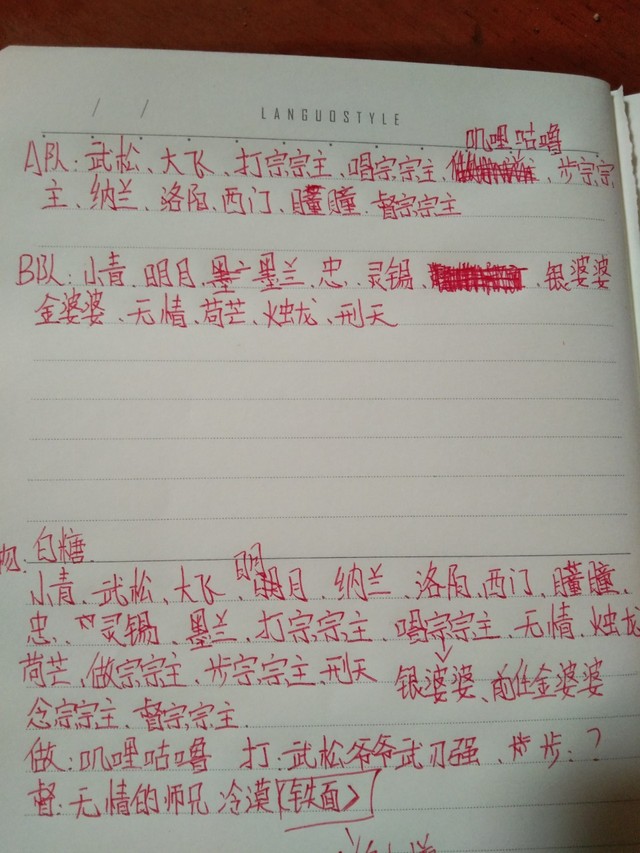 / /
LANGUOSTYLE
叽哩咕噜
A队:武松、大飞、打宗宗主、唱宗宗主、、步宗宗
主、纳兰、洛阳、西门、瞳瞳、督宗宗主
B队:小青、明月、墨兰、忠、灵锡、、银婆婆
金婆婆、无情、苟芒、烛龙、刑天
白糖
小青、武松、大飞、明月、纳兰、洛阳、西门、瞳瞳、
忠、灵锡、墨兰、打宗宗主、唱宗宗主、无情、烛龙
苟芒、做宗宗主、步宗宗主、刑天
银婆婆、前任金婆婆
念宗宗主、督宗宗主
做:叽哩咕噜 打:武松爷爷武刃强、步:?
督:无情的师兄 冷漠(铁面)